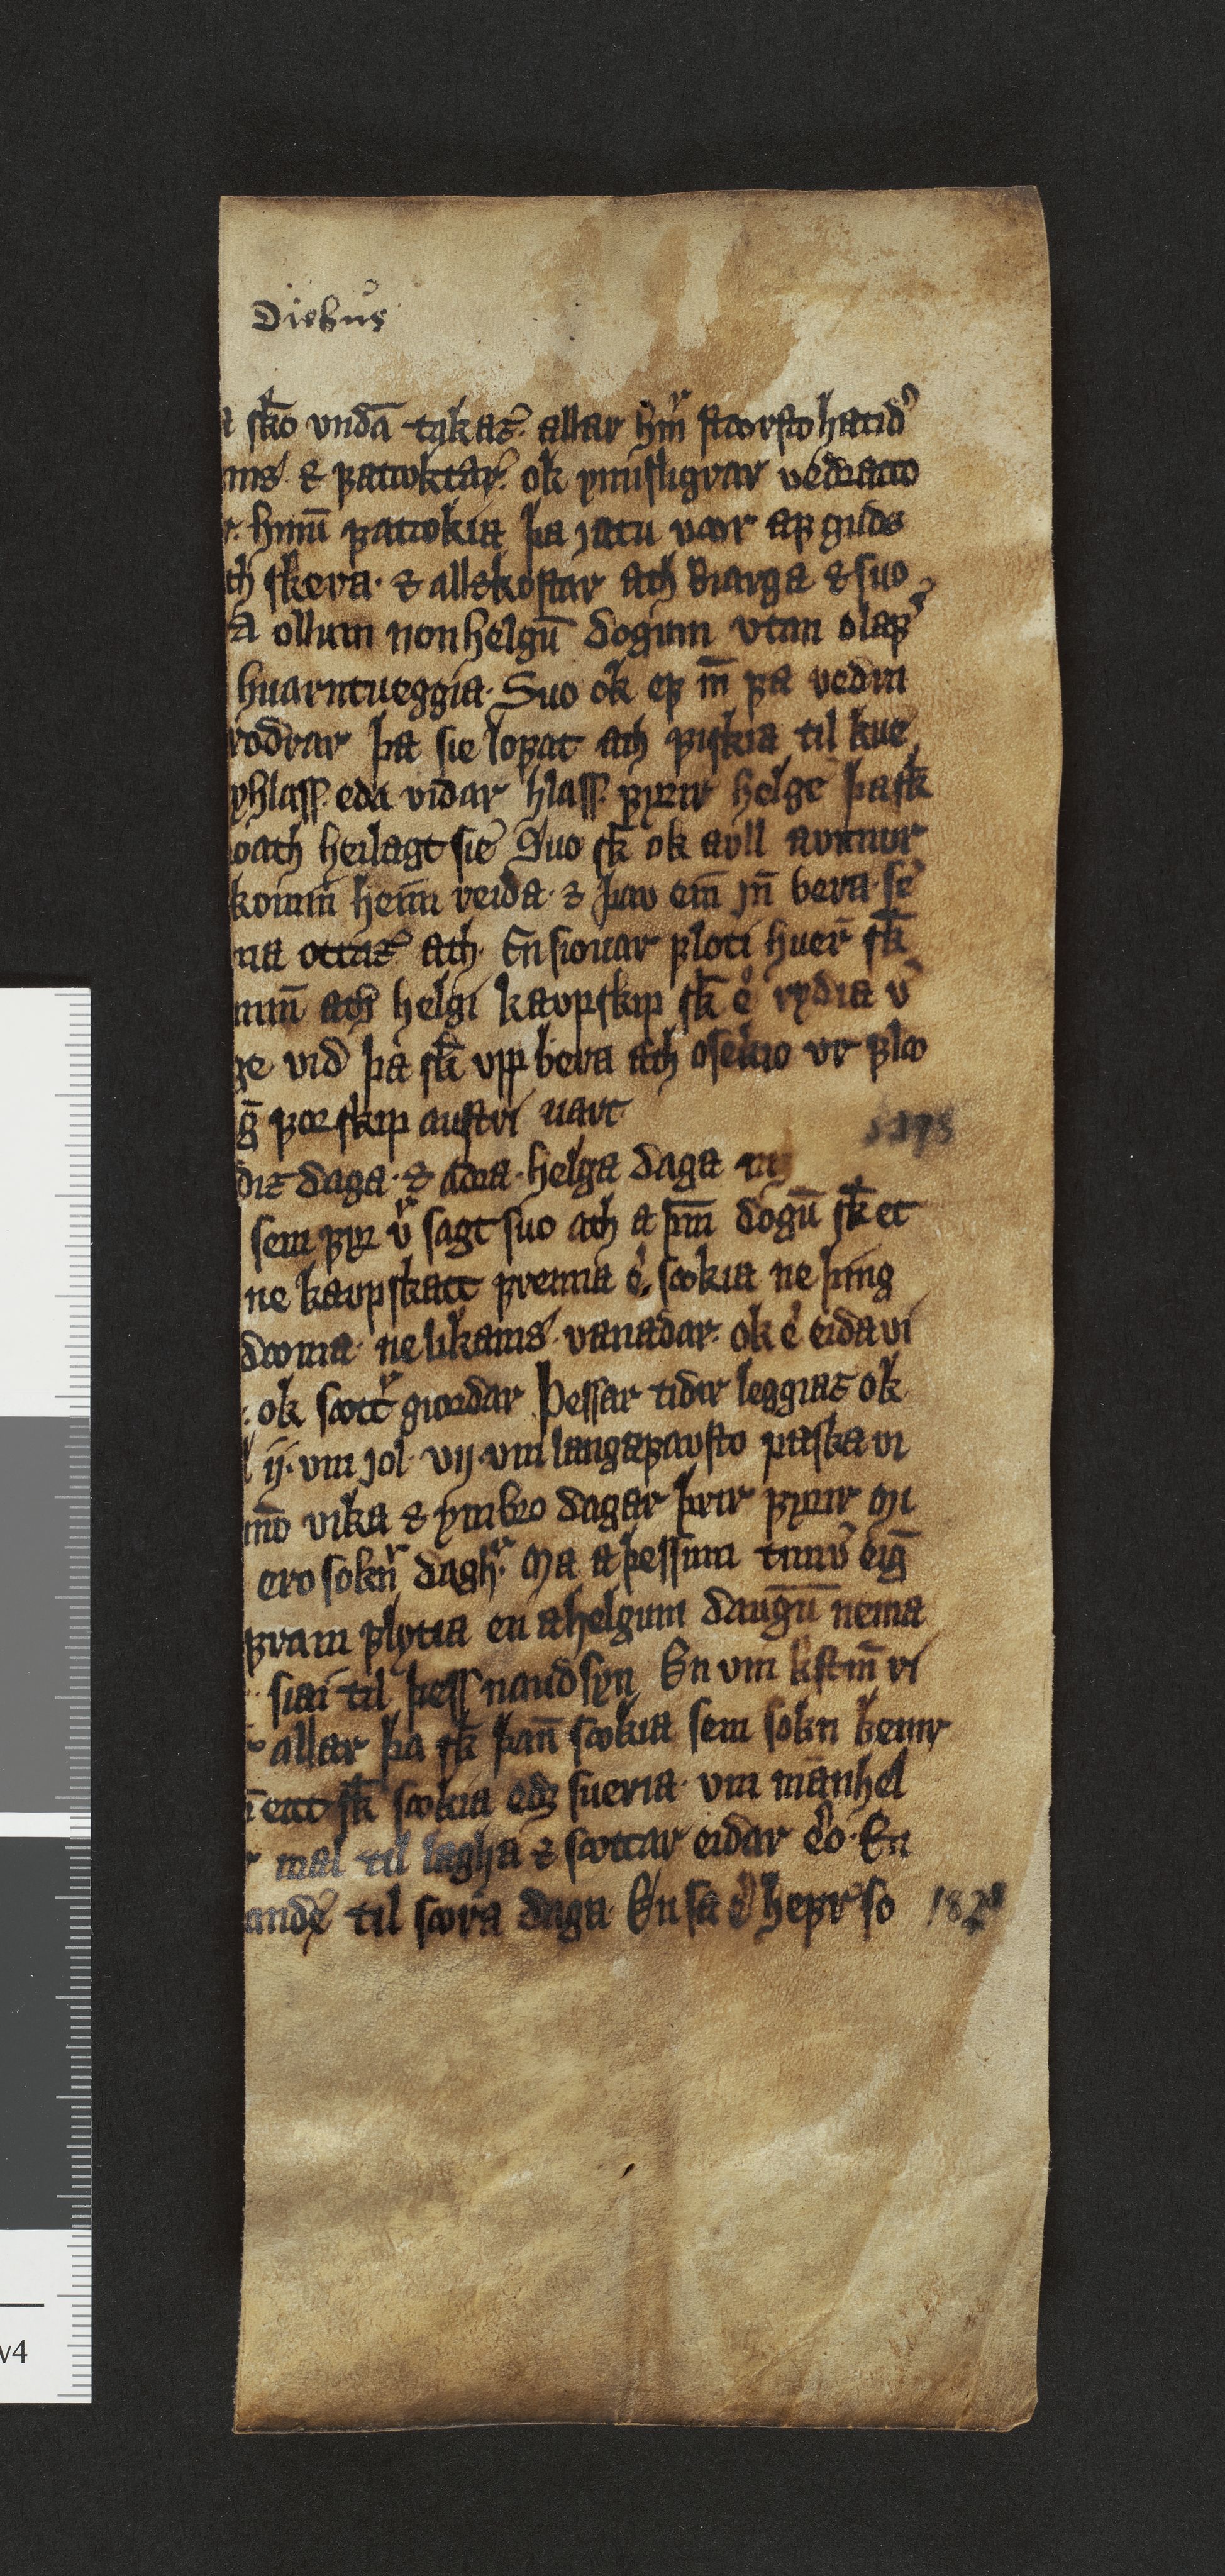 Diebus
a sko vndā tekaꝛ̄. allar hm̄ stoorsto hatid
ms. ⁊ ꝼattoktar. ok ymisligrar vedratto
r. hinū ꝼattokia þa jatu voor aꝼ guds
th skera. ⁊ allzkostar ath biarga ⁊ suo
a ollum nonhelgū dogum vtan olaꝼ
huarntueggia. Suo ok eꝼ m̄ ꝼa vedrꝛ
rodrar þa sie loꝼat ath ꝼiskia til kue
yhlass. eda vidar hlass. ꝼyrir helge þa sk̄
oath heilagt sie Suo sk̄ ok aull aunnur
komm̄ heim reida. ⁊ þav ein̄ jn̄ bera. se
na ottaz ath. En siouar ꝼloti huer̄ sk̄
mm̄ ath helgi kaupskip sk̄ e rydia v
ge vid þa sk̄ vpp bera ath osekio vr ꝼloo
g̅ ꝼor skip austri uart
diz daga. ⁊ adra. helga daga
sem ꝼyꝛ v sagt suo ath a þm̄ dogū sk̄ et
ne kaupskatt ꝼremia e. sookia ne þing
dooma. ne likams. vanadar. ok e eida vi
. ok soott giordar Þessar tidir leggiaz ok
ij. vm jol. vij. vm langaꝼausto paska vi
no vika ⁊ ymbro dagar þrir ꝼyrir mi
ero sokn dagh. Ma a þessum timū eig̅
ꝼram ꝼlytia en a helgum daugū nema
siai til þess naudsyn En vm kstm̄ ri
allar þa sk̄ þan̄ sookia sem sokn bemr
eitt sk̄ sookia edꝛ sueria. vm manhel
r mal til lagha ⁊ soottar eidar ero. En
ande til soora daga. En sa e heꝼir so